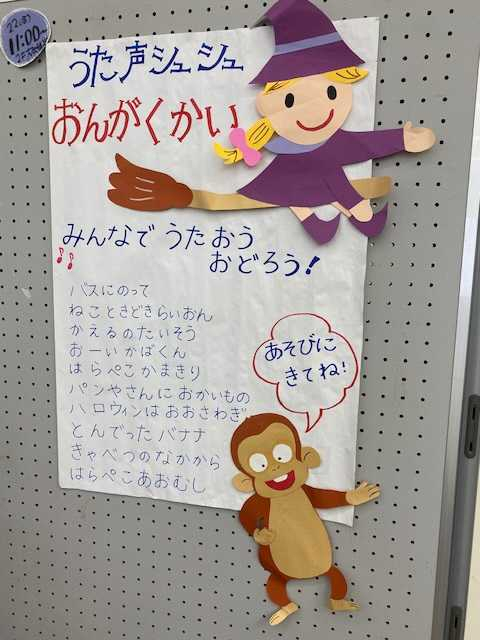 22(日)
11:00～
うた声シュシュ
おんがくかい
みんなで うたおう
おどろう!
バスにのって
ねこときどきらいおん
かえるのたいそう
おーいかばくん
はらぺこかまきり
パンやさんにおかいもの
ハロウィンはおおさわぎ
とんでったバナナ
きゃべつのなかから
はらぺこあおむし
あそびに
きてね!